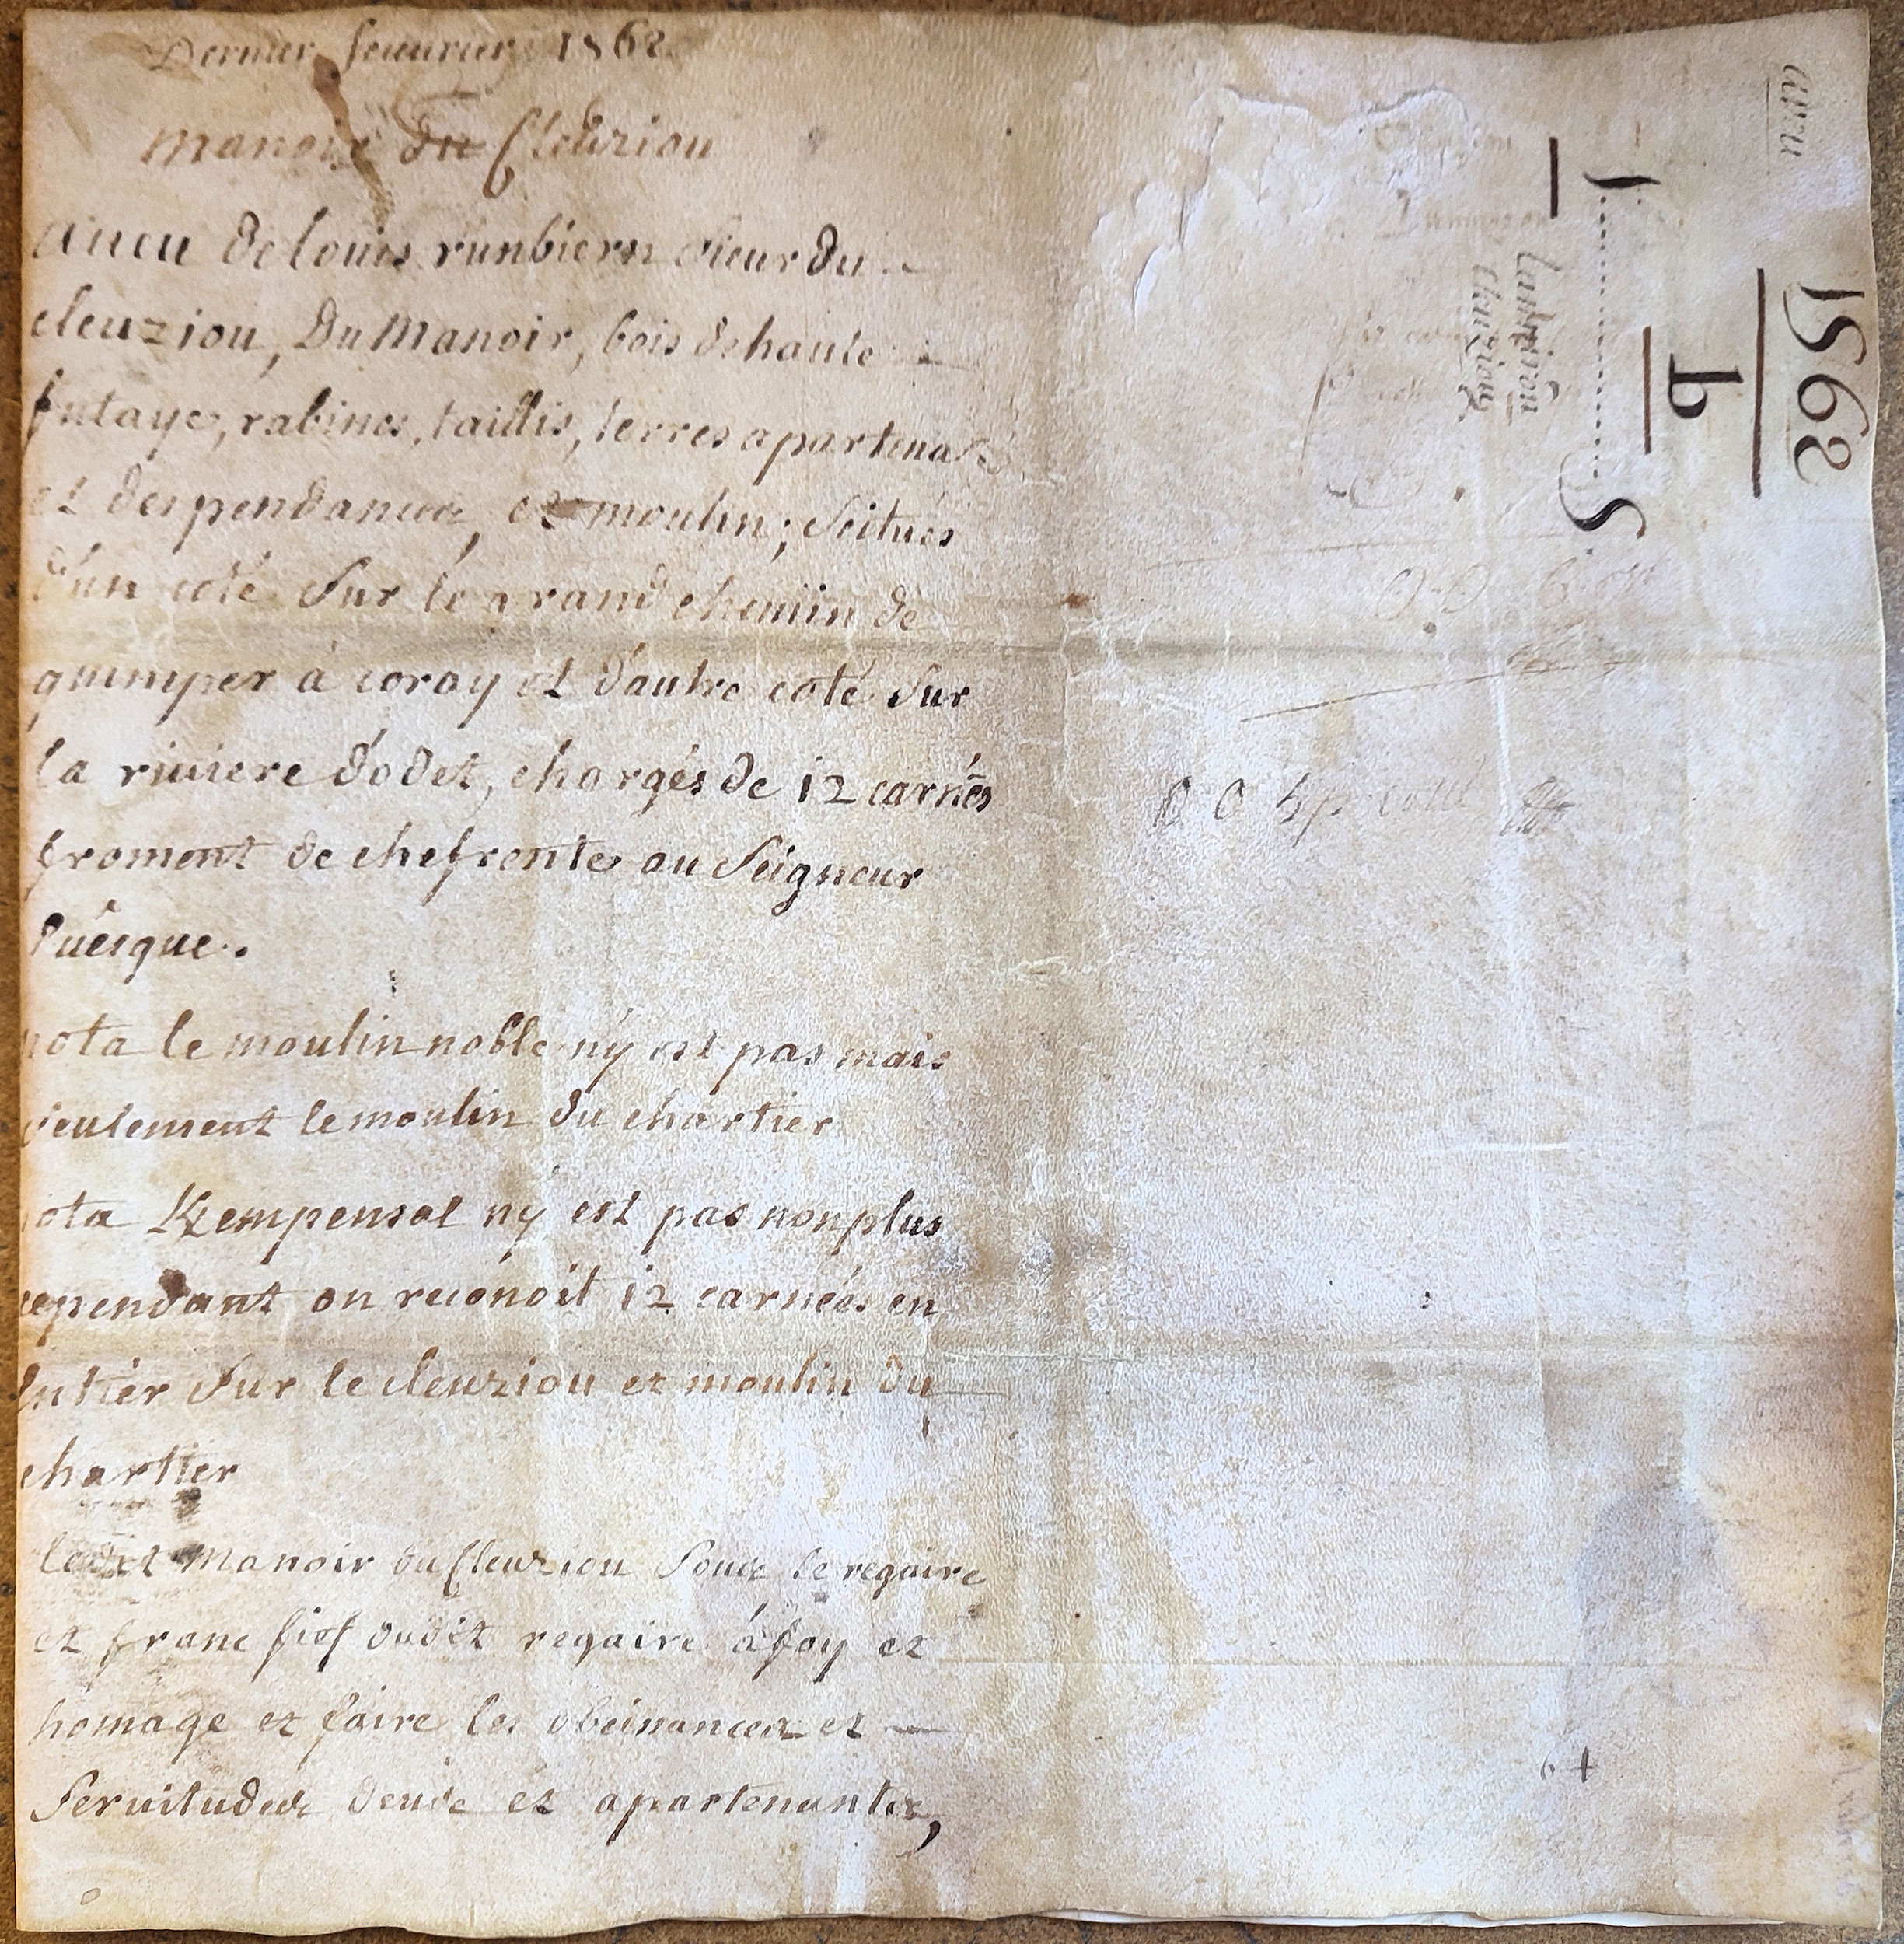 Dernier feuurier 1568
manoir du Cleuziou
aueu de louis runbiern sieur du
cleuziou, Du Manoir, bois de haute
futaye, rabines, taillis, terres apartena
et despendances, et moulin; scitués
d'un coté sur le grand chemin de
quimper à coray et d'autre coté sur
la riuiere d'odet, chargés de 12 carnés
froment de chefrente au seigneur
Euêsque.
nota le moulin noble n'y est pas mais
seulement le moulin du chartier
nota Kempensal n'y est pas non plus
cependant on reconoit 12 carnées en
Entier sur le cleuziou et moulin du
chartier
ledit manoir du Cleuziou soubz le regaire
et franc fief dudit regaire à foy et
homage et faire les obeissances et
seruitudes deuse et apartenantes,
aveu
1568
b
1 S
Landudal
cleuziou